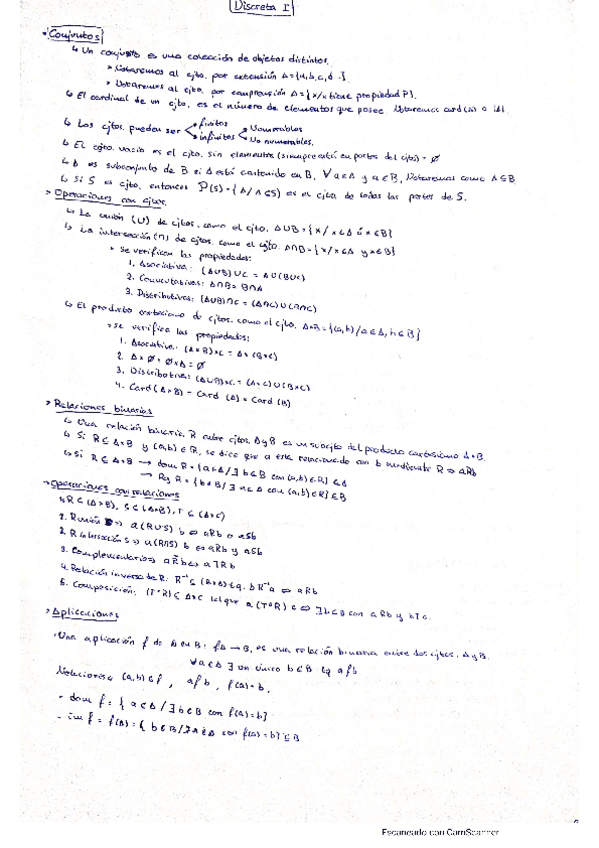 Discreta I
• Conjuntos
↳ Un conjunto es una colección de objetos distintos.
• Notaremos al cjto. por extensión A={a,b,c,d..}.
• Notaremos al cjto. por comprensión A={x/x tiene propiedad P}.
↳ El cardinal de un cjto. es el número de elementos que posee. Notaremos card(A) o |A|.
↳ Los cjtos. pueden ser < finitos
infinitos < Numerables
No numerables.
↳ El cjto. vacío es el cjto. sin elementos (siempre está en partes del cjto) = ∅
↳ A es subconjunto de B si A está contenido en B. ∀a∈A y a∈B, Notaremos como A⊆B
↳ Si S es cjto. entonces P(S)={A/A⊆S} es el cjto. de todas las partes de S.
• Operaciones con cjtos.
↳ La unión (U) de cjtos. como el cjto. A∪B={x/x∈A ó x∈B}
↳ La intersección (∩) de cjtos. como el cjto. A∩B={x/x∈A y x∈B}
• Se verifican las propiedades:
1. Asociativa: (A∪B)∪C = A∪(B∪C)
2. Conmutativas: A∩B = B∩A
3. Distributivas: (A∪B)∩C = (A∩C)∪(B∩C)
↳ El producto cartesiano de cjtos. como el cjto. A×B={(a,b)/a∈A, b∈B}
• se verifica las propiedades:
1. Asociativa: (A×B)×C = A×(B×C)
2. A×∅ = ∅×A = ∅
3. Distributiva: (A∪B)×C = (A×C)∪(B×C)
4. Card(A×B) = Card (A) × Card (B)
• Relaciones binarias
↳ Una relación binaria R entre cjtos. A y B es un subcjto del producto cartesiano A×B.
↳ Si R⊆A×B y (a,b)∈R, se dice que a está relacionado con b mediante R ⇒ aRb
↳ Si R⊆A×B → dom R = {a∈A/∃b∈B con (a,b)∈R} ⊆A
→ Rg R = {b∈B/∃a∈A con (a,b)∈R}⊆B
• Operaciones con relaciones
R⊆(A×B), S⊆(A×B), T⊆(A×C)
1. Reunión ⇒ a(R∪S) b ⇔ aRb o aSb
2. R intersección S ⇒ a(R∩S) b ⇔ aRb y aSb
3. Complementario ⇒ aR̄b ⇔ a⅂Rb
4. Relación inversa de R: R⁻¹⊆(B×A) tq. bR⁻¹a ⇔ aRb
5. Composición: (T∘R)⊆A×C tal que a(T∘R)c ⇔ ∃b∈B con aRb y bTc.
• Aplicaciones
· Una aplicación f de A en B: f:A→B, es una relación binaria entre dos cjtos. A y B.
∀a∈A ∃ un único b∈B tq afb
Notaciones (a,b)∈f, afb, f(a)=b,
- dom f = {a∈A/∃b∈B con f(a)=b}
- im f = f(A) = {b∈B/∃a∈A con f(a)=b}⊆B
Escaneado con CamScanner